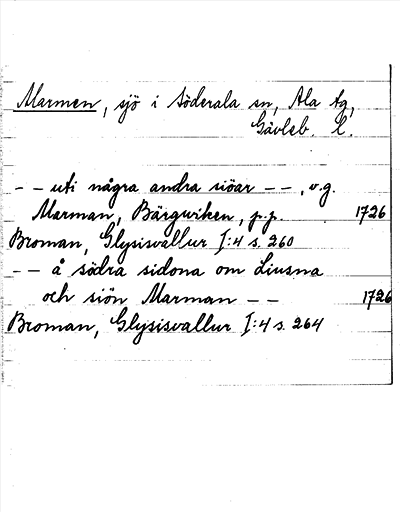 Marmen, sjö i Söderala sn, Ala tg,
Gävleb. L.
-- uti några andra siöar --, v.g.
Marman, Bärgwiken, p.p. 1726
Broman, Glysisvallur I:4 s. 260
-- å södra sidona om Liusna
och siön Marman -- 1726
Broman, Glysisvallur I:4 s. 264